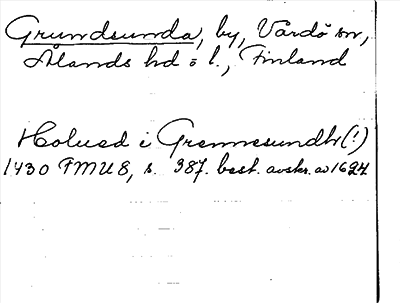 Grundsunda, by, Vårdö sn,
Ålands hd o l., Finland
Holusd i Grennesundh (!)
1430 FMU 8, s. 387. best. avskr. av 1624